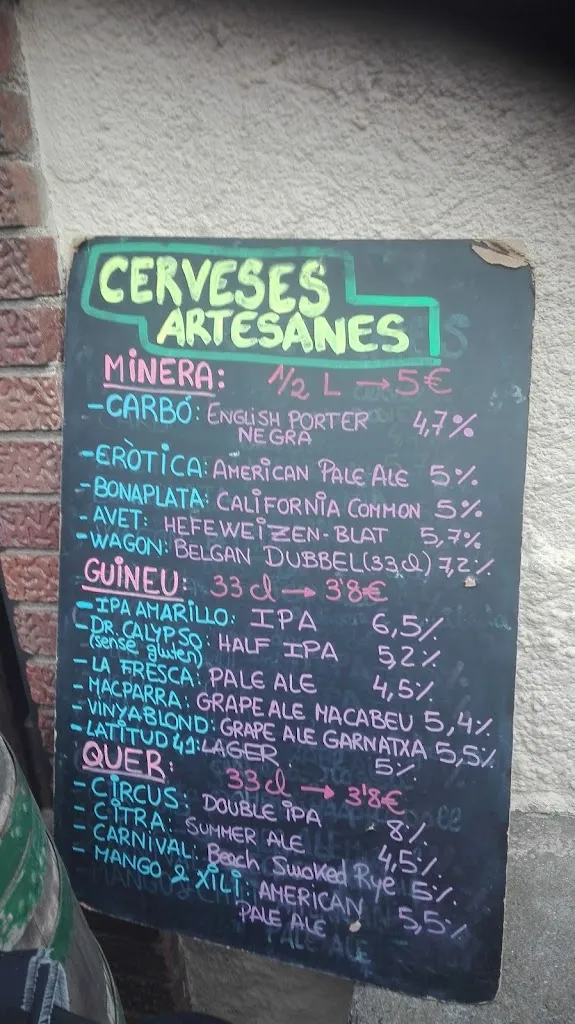 CERVESES
ARTESANES
MINERA: 1/2 L → 5€
-CARBÓ: ENGLISH PORTER 4,7%
NEGRA
-ERÒTICA: AMERICAN PALE ALE 5%
-BONAPLATA: CALIFORNIA COMMON 5%
-AVET: HEFEWEIZEN-BLAT 5,7%
-WAGON: BELGAN DUBBEL (33cl) 7,2%
GUINEU: 33cl → 3'8€
-IPA AMARILLO: IPA 6,5%
-DR. CALYPSO: HALF IPA 5,2%
(sense gluten)
-LA FRESCA: PALE ALE 4,5%
-MACPARRA: GRAPE ALE MACABEU 5,4%
-VINYABLOND: GRAPE ALE GARNATXA 5,5%
-LATITUD 41: LAGER 5%
QUER: 33cl → 3'8€
-CIRCUS: DOUBLE IPA 8%
-CITRA: SUMMER ALE 4,5%
-CARNIVAL: Beech Swoked Rye 5%
-MANGO & XILI: AMERICAN
PALE ALE 5,5%